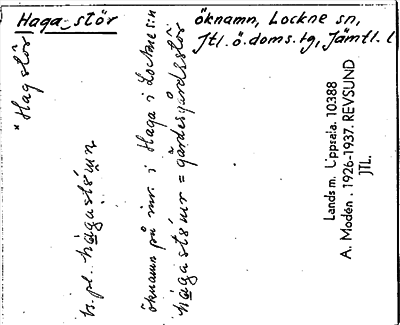 Haga-stör
öknamn, Lockne sn,
Jtl. ö. doms. tg, Jämtl. l
"Hagstör
b. pl.
öknamn på inv. i Haga i Lockne sn
= gärdesgårdsstör
Landsm. Uppsala. 10388
A. Modén. 1926-1937. REVSUND
JTL.